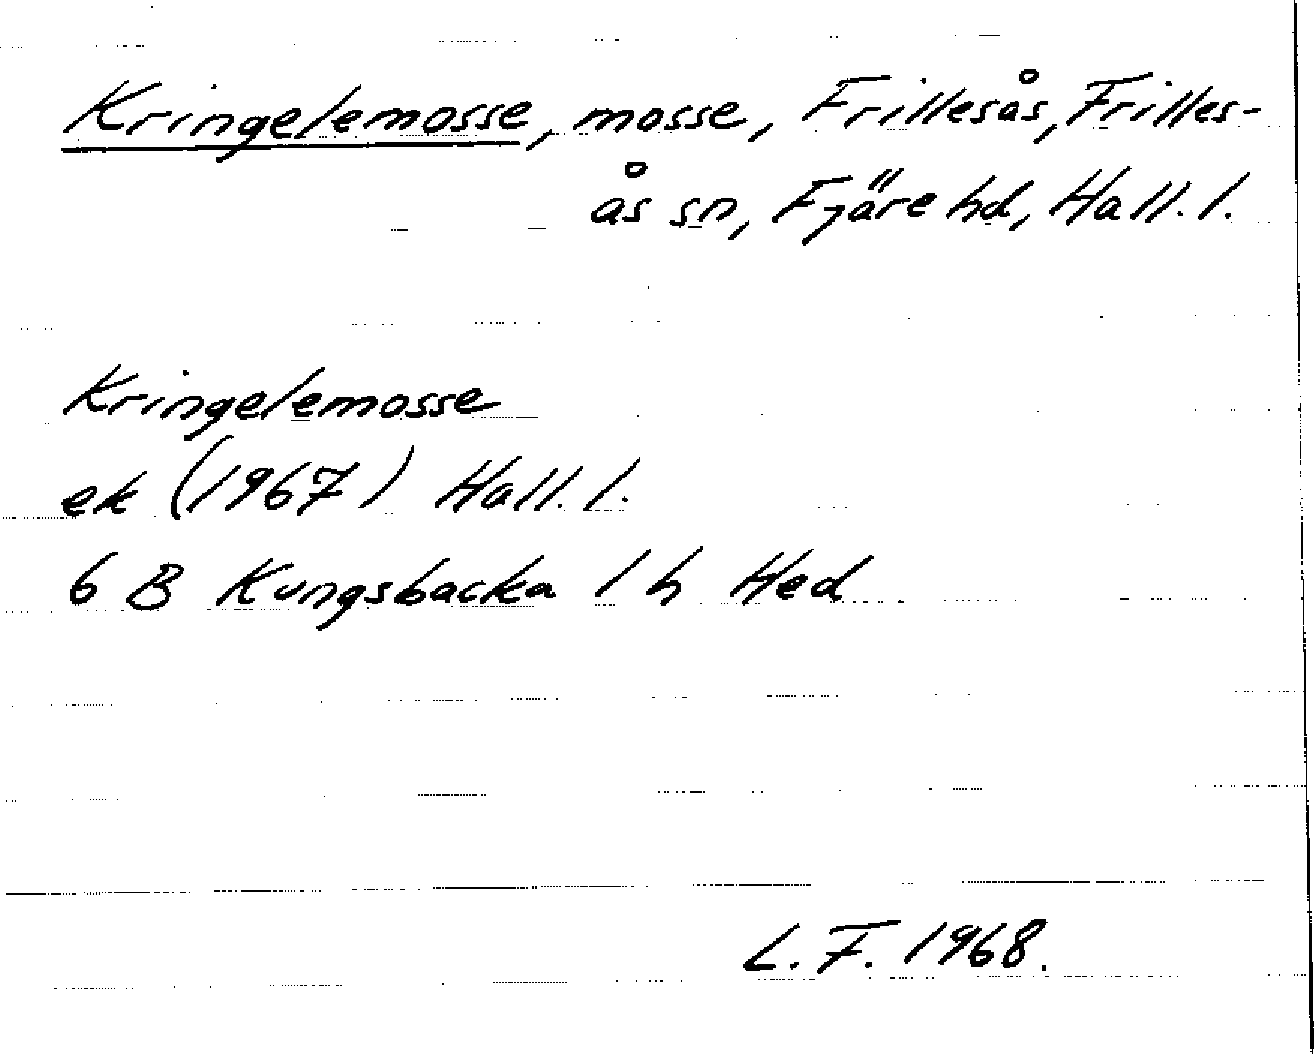 Kringelemosse, mosse, Frillesås, Frilles-
ås sn, Fjäre hd, Hall. l.
Kringelemosse
ek (1967) Hall. l.
6 B Kungsbacka 1 h Hed
L. F. 1968.